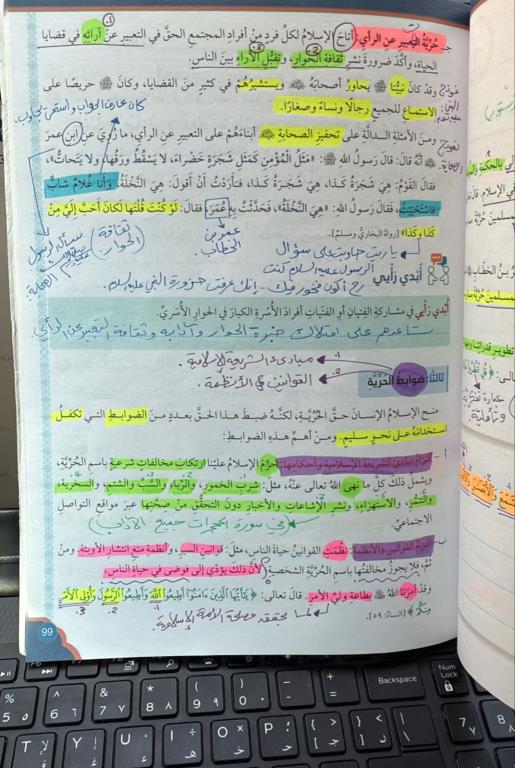 جـ- حُرِّيَّةُ التَّعبيرِ عنِ الرأيِ: أتاحَ الإسلامُ لكلِّ فردٍ منْ أفرادِ المجتمعِ الحقَّ في التعبيرِ عنْ آرائِهِ في قضايا
الحياةِ، وأكَّدَ ضرورةَ نشرِ ثقافةِ الحوارِ، وتقبُّلِ الآراءِ بينَ الناسِ.
وقدْ كانَ نَبِيُّنا ﷺ يحاورُ أصحابَهُ ويستشيرُهُمْ في كثيرٍ منَ القضايا، وكانَ ﷺ حريصًا على
الاستماعِ للجميعِ رجالًا ونساءً وصغارًا.
نموذج
ومنَ الأمثلةِ الدالَّةِ على تحفيزِ الصحابةِ أبناءَهُمْ على التعبيرِ عنِ الرأيِ، ما رُوِيَ عنِ ابنِ عمرَ
أنَّهُ قالَ: قالَ رسولُ اللهِ ﷺ: «مَثَلُ الْمُؤْمِنِ كَمَثَلِ شَجَرَةٍ خَضْراءَ، لا يَسْقُطُ وَرَقُها، ولا يَتَحاتُّ»،
فقال القَوْمُ: هِيَ شَجَرَةُ كَذا، هِيَ شَجَرَةُ كَذا، فأَرَدْتُ أَنْ أَقولَ: هِيَ النَّخْلَةُ، وأنا غُلامٌ شابٌّ
فاسْتَحْيَيْتُ، فقالَ رسولُ اللهِ: «هِيَ النَّخْلَةُ»، فَحَدَّثْتُ بِهِ عُمَرَ، فقالَ: لَوْ كُنْتَ قُلْتَها لَكانَ أَحَبَّ إِلَيَّ مِنْ
كَذا وَكَذا» [رواهُ البخاريُّ ومسلمٌ].
عمر بن
الخطاب
ثقافة
الحوار
يا ريت جاوبت على سؤال
الرسول عليه السلام كنت
أُبدي رَأيي
أُبْدي رَأيي في مشارَكةِ الفِتيانِ أوِ الفَتَياتِ أفرادَ الأسرةِ الكبارَ في الحوارِ الأُسَريِّ.
ستاعدهم على امتلاك خبرة الحوار وآدابه وثقافة التعبير عن الرأي.
١- مبادىء الشريعة الإسلامية.
٢- القوانين و الأنظمة.
ثالثًا: ضوابطُ الحُرِّيَّةِ
منحَ الإسلامُ الإنسانَ حقَّ الحُرِّيَّةِ، لكنَّهُ ضبطَ هذا الحقَّ بعددٍ منَ الضوابطِ التي تكفُلُ
استخدامَهُ على نحوٍ سليمٍ. ومنْ أهمِّ هذهِ الضوابطِ:
أ - التزامُ مبادئِ الشريعةِ الإسلاميةِ وأحكامِها: حَرَّمَ الإسلامُ علينا ارتكابَ مخالفاتٍ شرعيةٍ باسمِ الحُرِّيَّةِ،
ويشملُ ذلكَ كلَّ ما نهى اللهُ تعالى عنْهُ، مثلَ: شربِ الخمورِ، والرِّياءِ، والسَّبِّ والشتمِ، والسخريةِ،
والتنمُّرِ، والاستهزاءِ، ونشرِ الإشاعاتِ والأخبارِ دونَ التحقُّقِ منْ صحَّتِها عبرَ مواقعِ التواصلِ
الاجتماعيِّ.
(في سورة الحجرات جميع الآداب)
ب- التزامُ القوانينِ والأنظمةِ: نظَّمَتِ القوانينُ حياةَ الناسِ، مثلُ: قوانينِ السيرِ، وأنظمةِ منعِ انتشارِ الأوبئةِ. ومنْ
ثَمَّ، فلا يجوزُ مخالفتُها باسمِ الحُرِّيَّةِ الشخصيةِ؛ لأنَّ ذلكَ يؤدّي إلى فوضى في حياةِ الناسِ.
وقدْ أمرَنا اللهُ ﷻ بطاعةِ وليِّ الأمرِ. قالَ تعالى: ﴿يَٰٓأَيُّهَا ٱلَّذِينَ ءَامَنُوٓا۟ أَطِيعُوا۟ ٱللَّهَ وَأَطِيعُوا۟ ٱلرَّسُولَ وَأُو۟لِى ٱلْأَمْرِ
مِنكُمْ﴾ [النساء: ٥٩].
لما يحققه مصلحة الأمة الإسلامية.
99
Backspace
Num
Lock